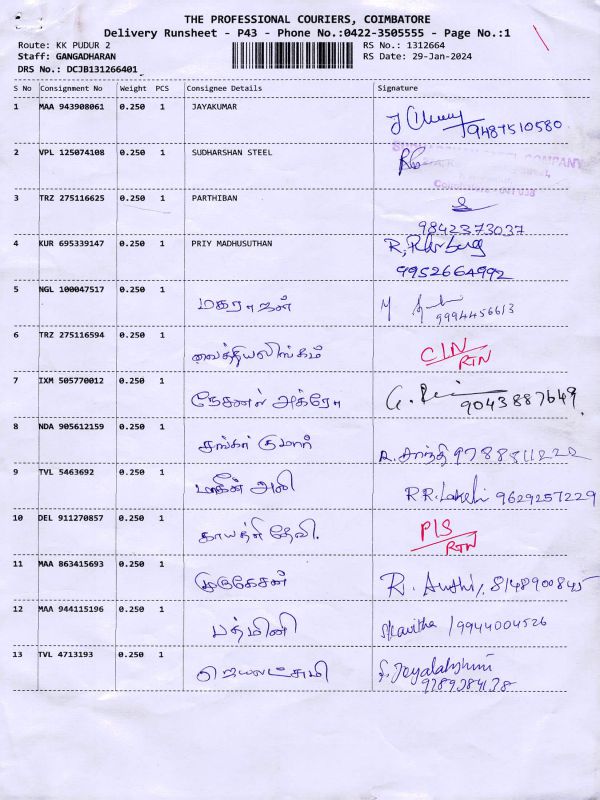 THE PROFESSIONAL COURIERS, COIMBATORE
Delivery Runsheet - P43 - Phone No.:0422-3505555 - Page No.:1
Route: KK PUDUR 2
RS No.: 1312664
Staff: GANGADHARAN
RS Date: 29-Jan-2024
DRS No.: DCJB131266401
S No Consignment No Weight PCS Consignee Details Signature
1 MAA 943908061 0.250 1 JAYAKUMAR 9487510580
2 VPL 125074108 0.250 1 SUDHARSHAN STEEL
3 TRZ 275116625 0.250 1 PARTHIBAN
9842373037
4 KUR 695339147 0.250 1 PRIY MADHUSUTHAN
9952664992
5 NGL 100047517 0.250 1 மகராஜன் M 9994456613
6 TRZ 275116594 0.250 1 வைத்தியலிங்கம் C/N
RTN
7 IXM 505770012 0.250 1 நேசனல் அக்ரோ 9043887649
8 NDA 905612159 0.250 1 சங்கர் குமார் R. சாந்தி 9788511220
9 TVL 5463692 0.250 1 அலி 9629257229
10 DEL 911270857 0.250 1 காயத்ரி தேவி. P/S
RTN
11 MAA 863415693 0.250 1 முருகேசன் R. 8148900845
12 MAA 944115196 0.250 1 பத்மினி Skavitha /9944004526
13 TVL 4713193 0.250 1 ஜெயலட்சுமி S. Jeyalakshmi
9789384138